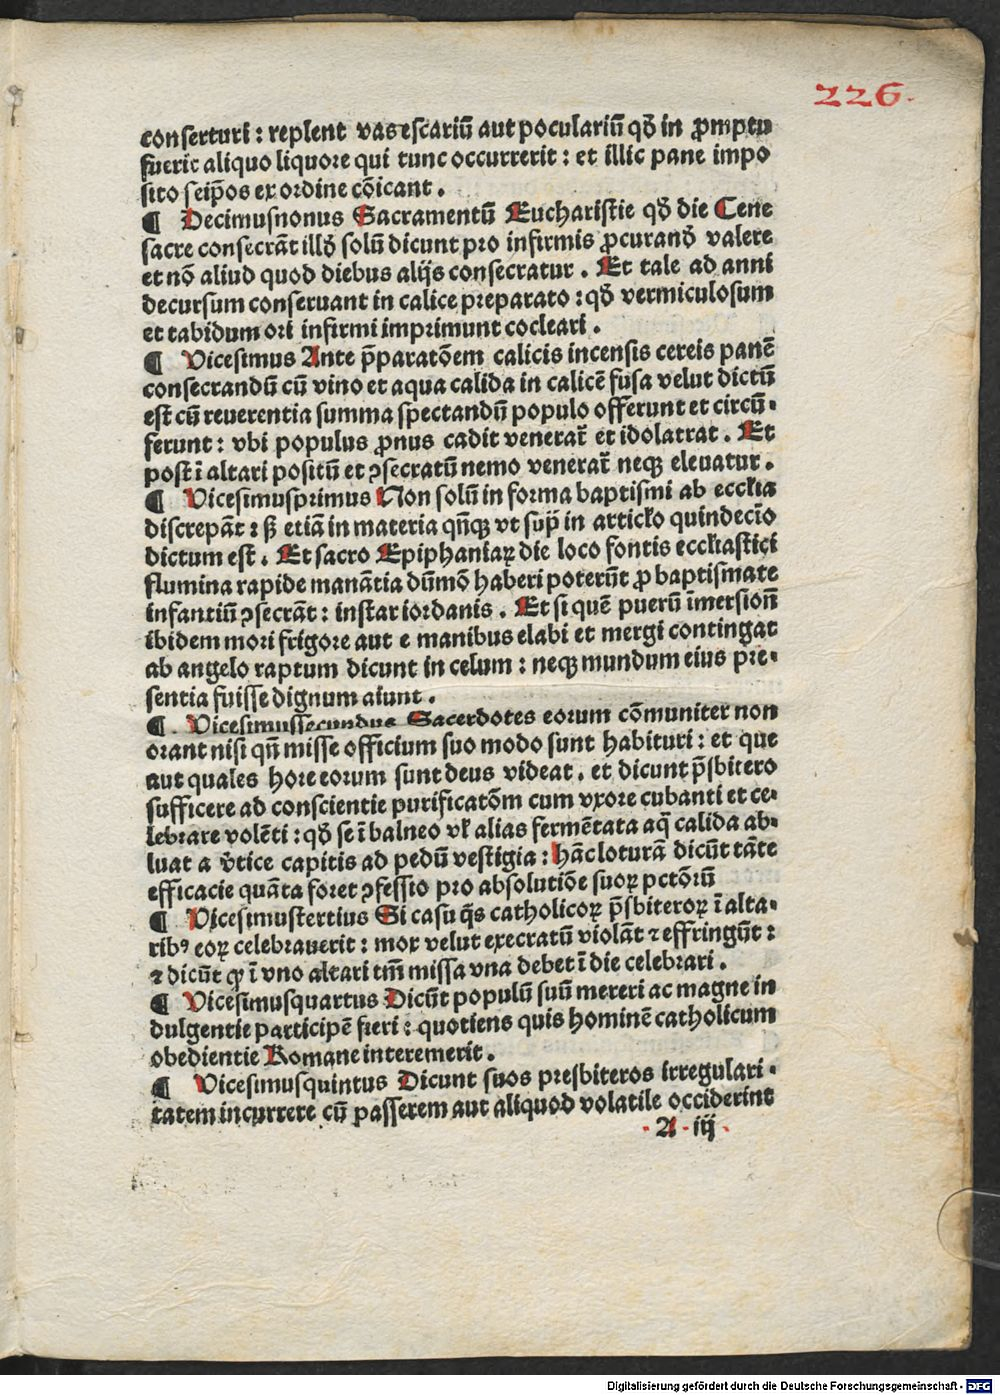 226.
conserturi: replent vas escariū aut poculariū qd̄ in ꝓmptu
fuerit aliquo liquore qui tunc occurrerit: et illic pane impo
sito seip̄os ex ordine cōicant.
¶ Decimusnonus Sacramentū Eucharistie qd̄ die Cene
sacre consecrāt illd̄ solū dicunt pro infirmis ꝓcurand̄ valere
et nō aliud quod diebus alijs consecratur. Et tale ad anni
decursum conseruant in calice preparato: qd̄ vermiculosum
et tabidum ori infirmi imprimunt cocleari.
¶ Vicesimus Ante p̄paratōem calicis incensis cereis panē
consecrandū cū vino et aqua calida in calicē fusa velut dictū
est cū reuerentia summa spectandū populo offerunt et circū-
ferunt: vbi populus ꝓnus cadit venerat̄ et idolatrat. Et
post ī altari positū et ꝯsecratū nemo venerat̄ neqꝫ eleuatur.
¶ Vicesimusprimus Non solū in forma baptismi ab eccłia
discrepāt: sꝫ etiā in materia qn̄qꝫ vt sup̄ in articło quindecīo
dictum est. Et sacro Epiphaniaꝝ die loco fontis eccłiastici
flumina rapide manātia dūmō haberi poterūt ꝓ baptismate
infantiū ꝯsecrāt: instar iordanis. Et si quē puerū īmersion̄
ibidem mori frigore aut e manibus elabi et mergi contingat
ab angelo raptum dicunt in celum: neqꝫ mundum eius pre-
sentia fuisse dignum aiunt.
¶. Vicesimussecundus Sacerdotes eorum cōmuniter non
orant nisi qn̄ misse officium suo modo sunt habituri: et que
aut quales hore eorum sunt deus videat. et dicunt p̄sbitero
sufficere ad conscientie purificatōm cum vxore cubanti et ce-
lebrare volēti: qd̄ se ī balneo vł alias fermētata aq̄ calida ab-
luat a v̄tice capitis ad pedū vestigia: hāc loturā dicūt tāte
efficacie quāta foret ꝯfessio pro absolutiōe suoꝝ pctōrū
¶ Vicesimustertius Si casu q̄s catholicoꝝ p̄sbiteroꝝ ī alta-
ribꝰ eoꝝ celebrauerit: mox velut execratū violāt ⁊ effringūt:
⁊ dicūt ꝙ ī vno altari tm̄ missa vna debet ī die celebrari.
¶ Vicesimusquartus Dicūt populū suū mereri ac magne in
dulgentie participē fieri: quotiens quis hominē catholicum
obedientie Romane interemerit.
¶ Vicesimusquintus Dicunt suos presbiteros irregulari-
tatem incurrere cū passerem aut aliquod volatile occiderint
.A.iij.
Digitalisierung gefördert durch die Deutsche Forschungsgemeinschaft - DFG